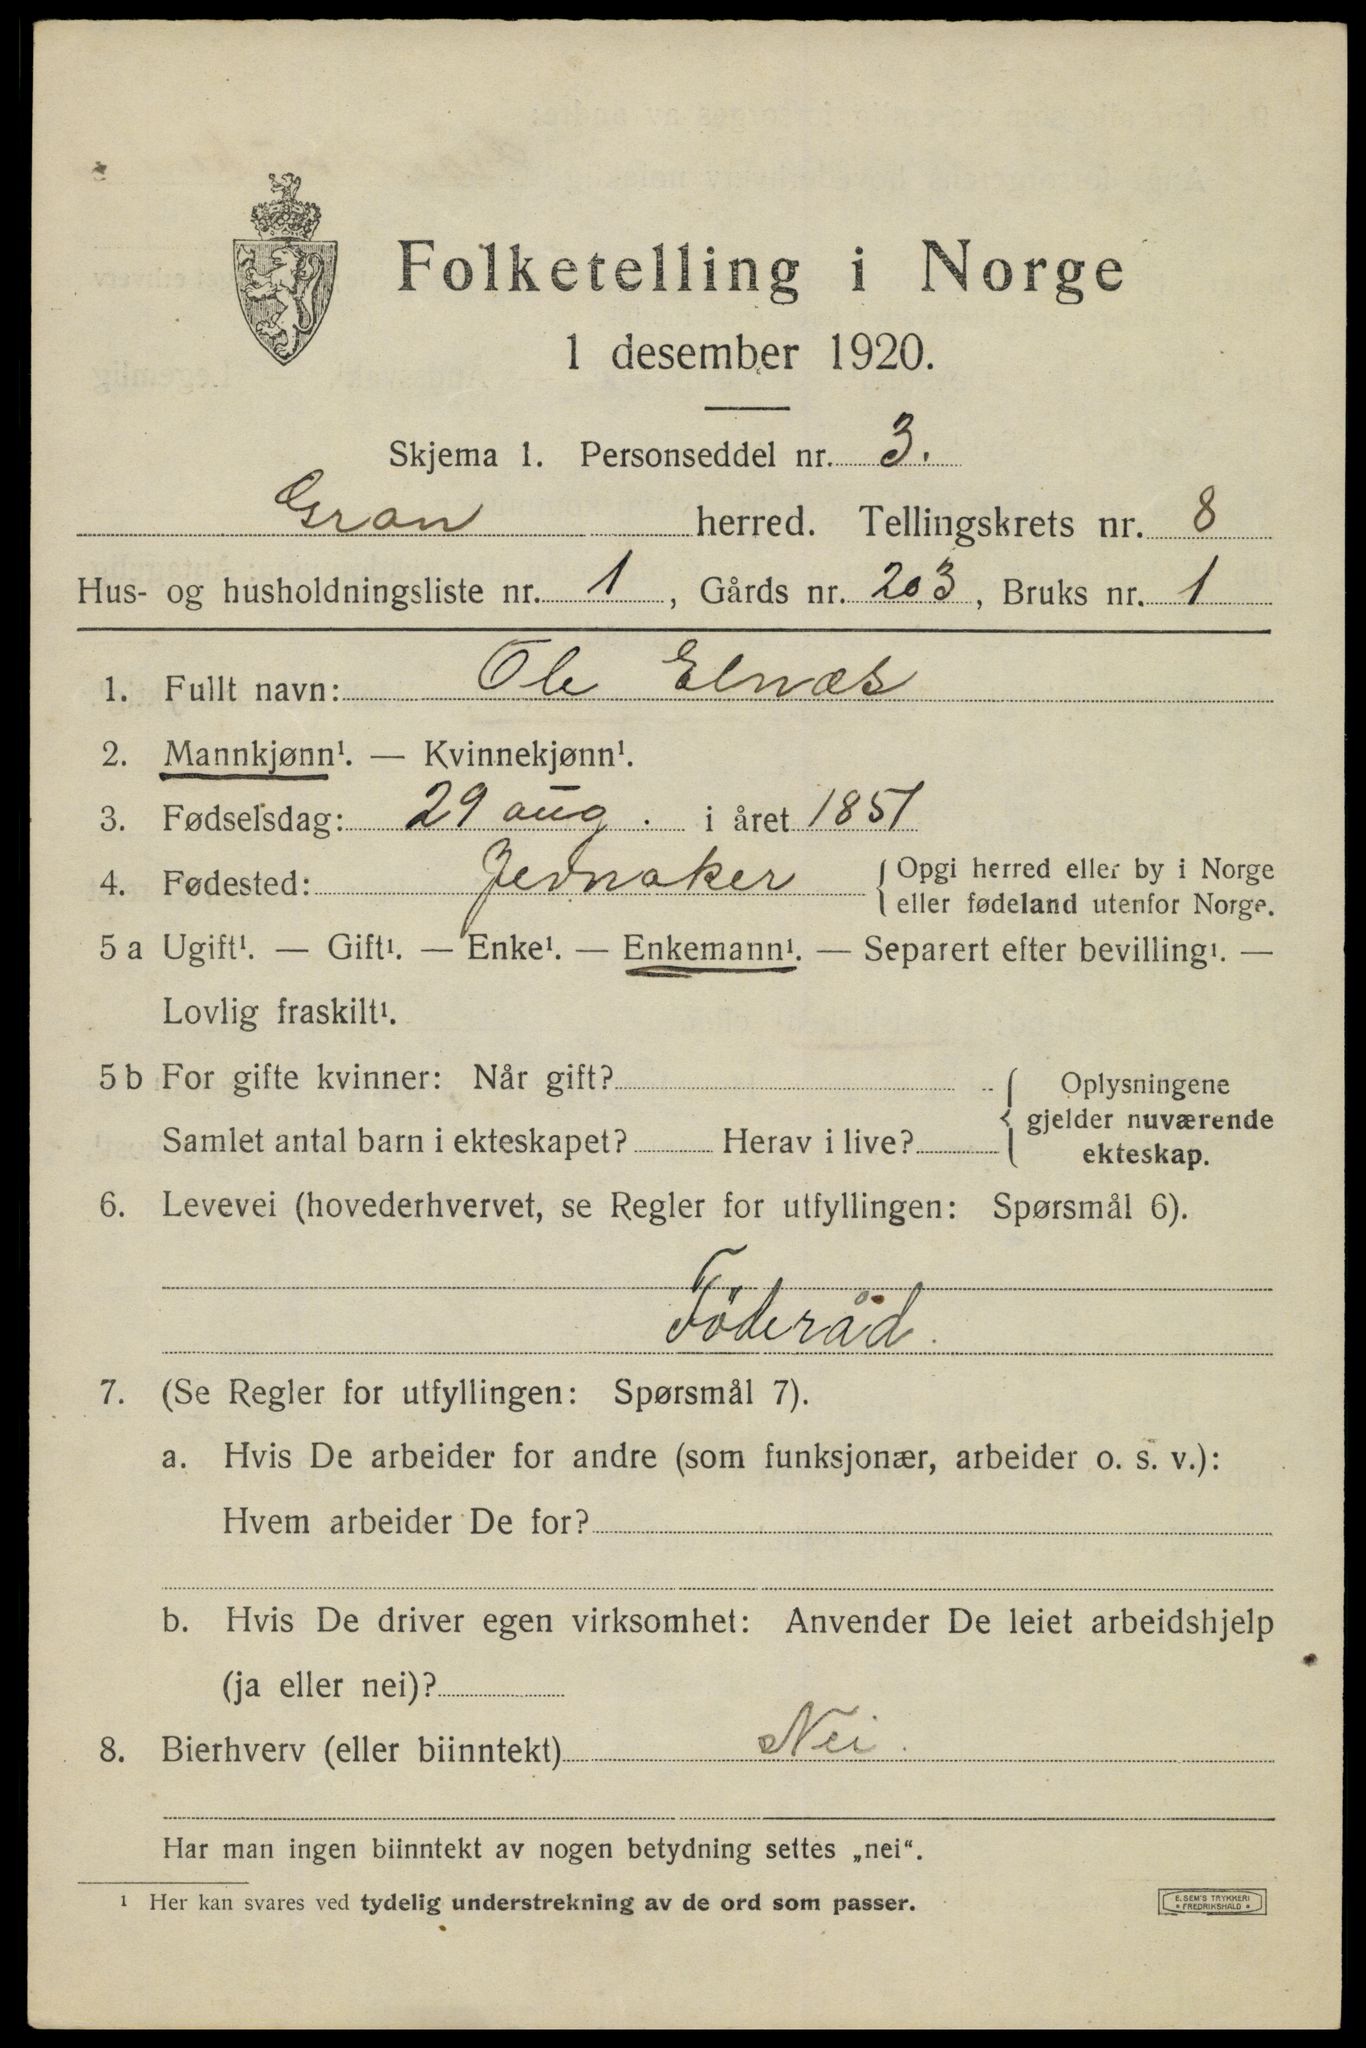 Folketelling i Norge
1 desember 1920.
Skjema 1. Personseddel nr. 3.
Gran herred. Tellingskrets nr. 8
Hus- og husholdningsliste nr. 1, Gårds nr. 203, Bruks nr. 1
1. Fullt navn: Ole Elnæs
2. Mannkjønn¹. — Kvinnekjønn¹.
3. Fødselsdag: 29 aug. i året 1851
4. Fødested: Jevnaker { Opgi herred eller by i Norge
eller fødeland utenfor Norge.
5 a Ugift¹. — Gift¹. — Enke¹. — Enkemann¹. — Separert efter bevilling¹. —
Lovlig fraskilt¹.
5 b For gifte kvinner: Når gift? { Oplysningene
gjelder nuværende
Samlet antal barn i ekteskapet? Herav i live?
ekteskap.
6. Levevei (hovederhvervet, se Regler for utfyllingen: Spørsmål 6).
Föderåd.
7. (Se Regler for utfyllingen: Spørsmål 7).
a. Hvis De arbeider for andre (som funksjonær, arbeider o. s. v.):
Hvem arbeider De for?
b. Hvis De driver egen virksomhet: Anvender De leiet arbeidshjelp
(ja eller nei)?
8. Bierhverv (eller biinntekt) Nei.
Har man ingen biinntekt av nogen betydning settes „nei“.
¹ Her kan svares ved tydelig understrekning av de ord som passer.
E. SEM'S TRYKKERI
* FREDRIKSHALD *